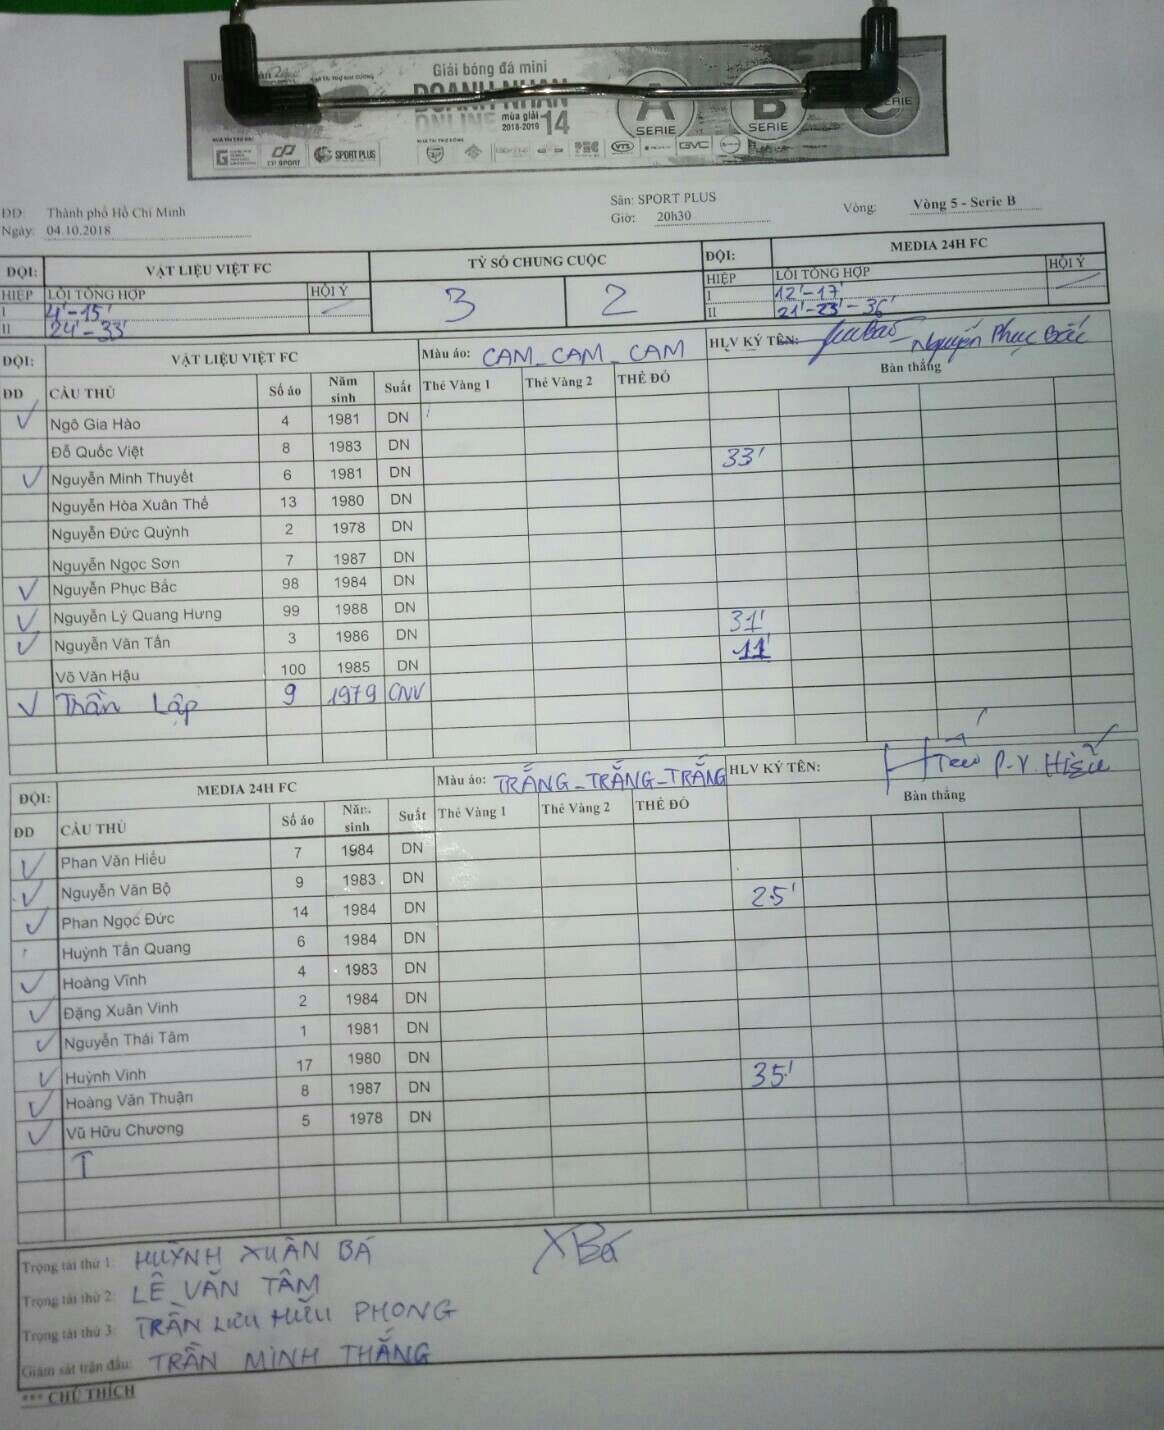 Giải bóng đá mini
DOANH NHÂN
ONLINE mùa giải 2018-2019 14
A SERIE B SERIE C SERIE
CP SPORT SPORT PLUS VTS GVC
ĐĐ: Thành phố Hồ Chí Minh Sân: SPORT PLUS Vòng: Vòng 5 - Serie B
Ngày: 04.10.2018 Giờ: 20h30
ĐỘI: VẬT LIỆU VIỆT FC TỶ SỐ CHUNG CUỘC ĐỘI: MEDIA 24H FC
HIỆP LỖI TỔNG HỢP HỘI Ý 3 2 HIỆP LỖI TỔNG HỢP HỘI Ý
I 4'-15' I 12'-17'
II 24'-33' II 21'-23'-36'
ĐỘI: VẬT LIỆU VIỆT FC Màu áo: CAM_CAM_CAM HLV KÝ TÊN: Nguyễn Phục Bắc
ĐD CẦU THỦ Số áo Năm sinh Suất Thẻ Vàng 1 Thẻ Vàng 2 THẺ ĐỎ Bàn thắng
✓ Ngô Gia Hào 4 1981 DN
Đỗ Quốc Việt 8 1983 DN 33'
✓ Nguyễn Minh Thuyết 6 1981 DN
Nguyễn Hòa Xuân Thế 13 1980 DN
Nguyễn Đức Quỳnh 2 1978 DN
Nguyễn Ngọc Sơn 7 1987 DN
✓ Nguyễn Phục Bắc 98 1984 DN
✓ Nguyễn Lý Quang Hưng 99 1988 DN 31'
✓ Nguyễn Văn Tấn 3 1986 DN 11'
Võ Văn Hậu 100 1985 DN
✓ Trần Lập 9 1979 CNV
ĐỘI: MEDIA 24H FC Màu áo: TRẮNG_TRẮNG_TRẮNG HLV KÝ TÊN: P.V. Hiếu
ĐD CẦU THỦ Số áo Năm sinh Suất Thẻ Vàng 1 Thẻ Vàng 2 THẺ ĐỎ Bàn thắng
✓ Phan Văn Hiếu 7 1984 DN
✓ Nguyễn Văn Bộ 9 1983 DN 25'
✓ Phan Ngọc Đức 14 1984 DN
Huỳnh Tấn Quang 6 1984 DN
✓ Hoàng Vĩnh 4 1983 DN
✓ Đặng Xuân Vinh 2 1984 DN
✓ Nguyễn Thái Tâm 1 1981 DN
✓ Huỳnh Vinh 17 1980 DN 35'
✓ Hoàng Văn Thuận 8 1987 DN
✓ Vũ Hữu Chương 5 1978 DN
T
Trọng tài thứ 1: HUỲNH XUÂN BÁ XBá
Trọng tài thứ 2: LÊ VĂN TÂM
Trọng tài thứ 3: TRẦN LƯU HỮU PHONG
Giám sát trận đấu: TRẦN MINH THẮNG
*** CHÚ THÍCH